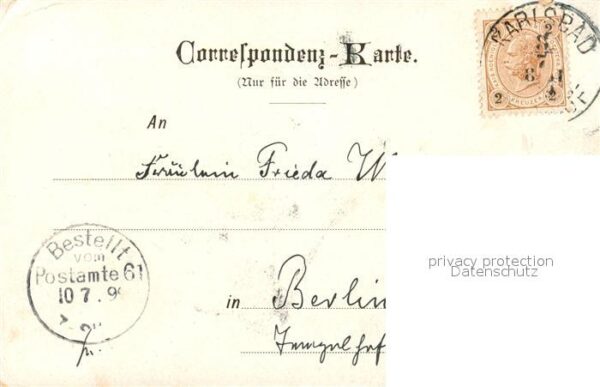 Correspondenz-Karte.
(Nur für die Adresse)
CARLSBAD
2 KREUZER 2
An
Fräulein Frieda W
privacy protection
Datenschutz
Bestellt
vom
Postamte 61
10 7. 9
in Berlin